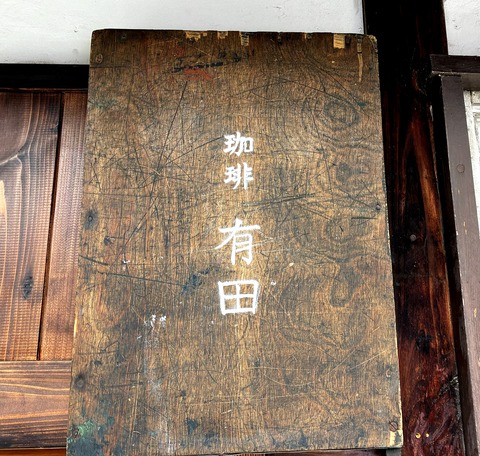 珈琲 有田